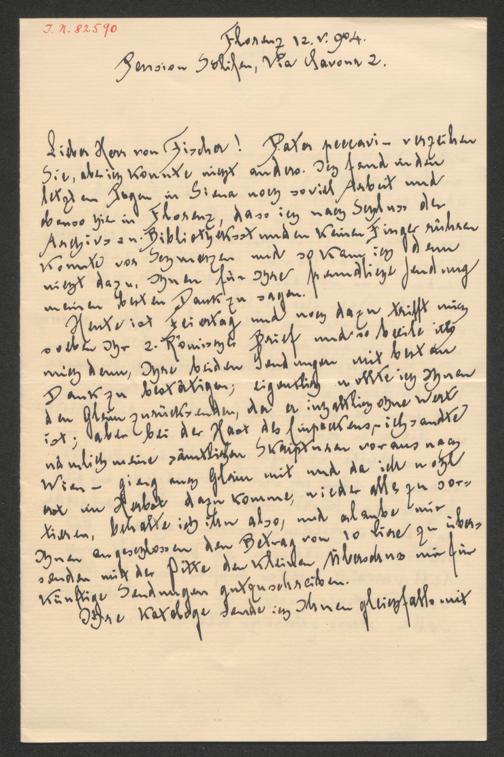 I. N. 82590
Florenz 12. V. 904.
Pension Via Savona 2.
Lieber Herr von Fischer! Pater peccavi – verzeihen
Sie, aber ich konnte nicht anders. Ich fand in den
letzten Tagen in Siena noch soviel Arbeit und
ebenso hier in Florenz, dass ich nach Schluss der
Archivs- u. Bibliotheksstunden keinen Finger rühren
konnte vor Schmerzen und so kam ich denn
nicht dazu, Ihnen für Ihre freundliche Sendung
meinen besten Dank zu sagen.
Heute ist Feiertag und noch dazu trifft mich
soeben Ihr 2. Römischer Brief und so beeile ich
mich denn, Ihre beiden Sendungen mit bestem
Dank zu bestätigen; eigentlich wollte ich Ihnen
den zurücksenden, da er inhaltlich ohne Wert
ist; aber bei der Hast des Einpackens, – ich sandte
nämlich meine sämtlichen Skripturen voraus nach
Wien – gieng auch mit und da ich wohl
erst im Herbst dazu komme, wieder alles zu sor-
tieren, behalte ich ihn also, und erlaube mir
Ihnen angeschlossen den Betrag von 10 Lire zu über-
senden mit der Bitte den kleinen Überschuss mir für
künftige Sendungen gutzuschreiben.
Ihre Kataloge sende ich Ihnen gleichfalls mit